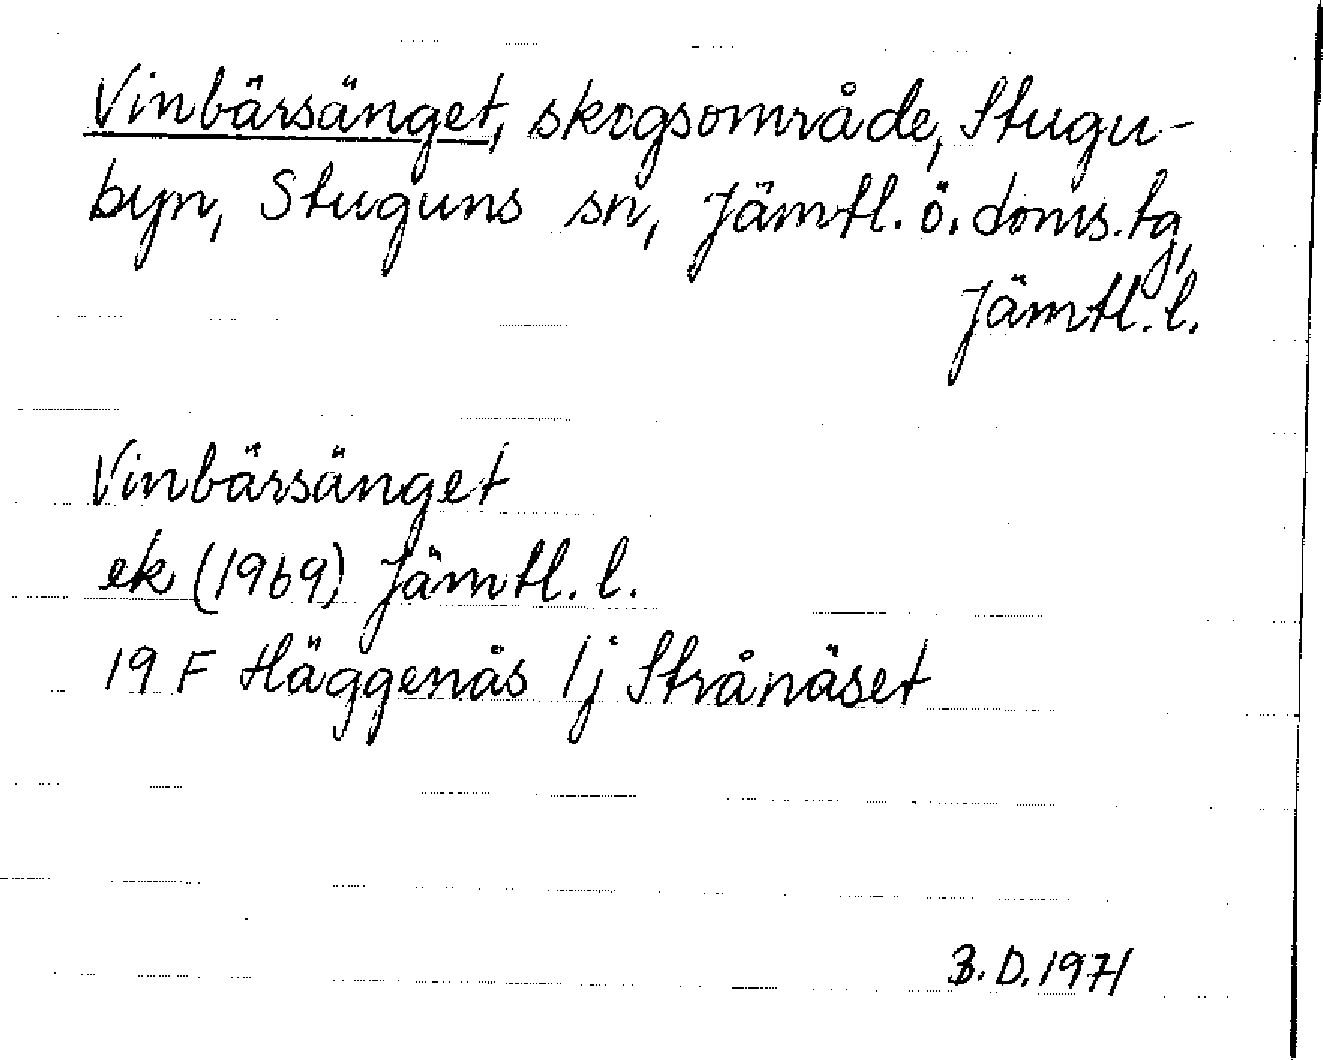 Vinbärsänget, skogsområde, Stugu-
byn, Stuguns sn, Jämtl. ö. doms. tg,
Jämtl. l.
Vinbärsänget
ek (1969) Jämtl. l.
19 F Häggenås 1j Strånäset
B.D. 1971